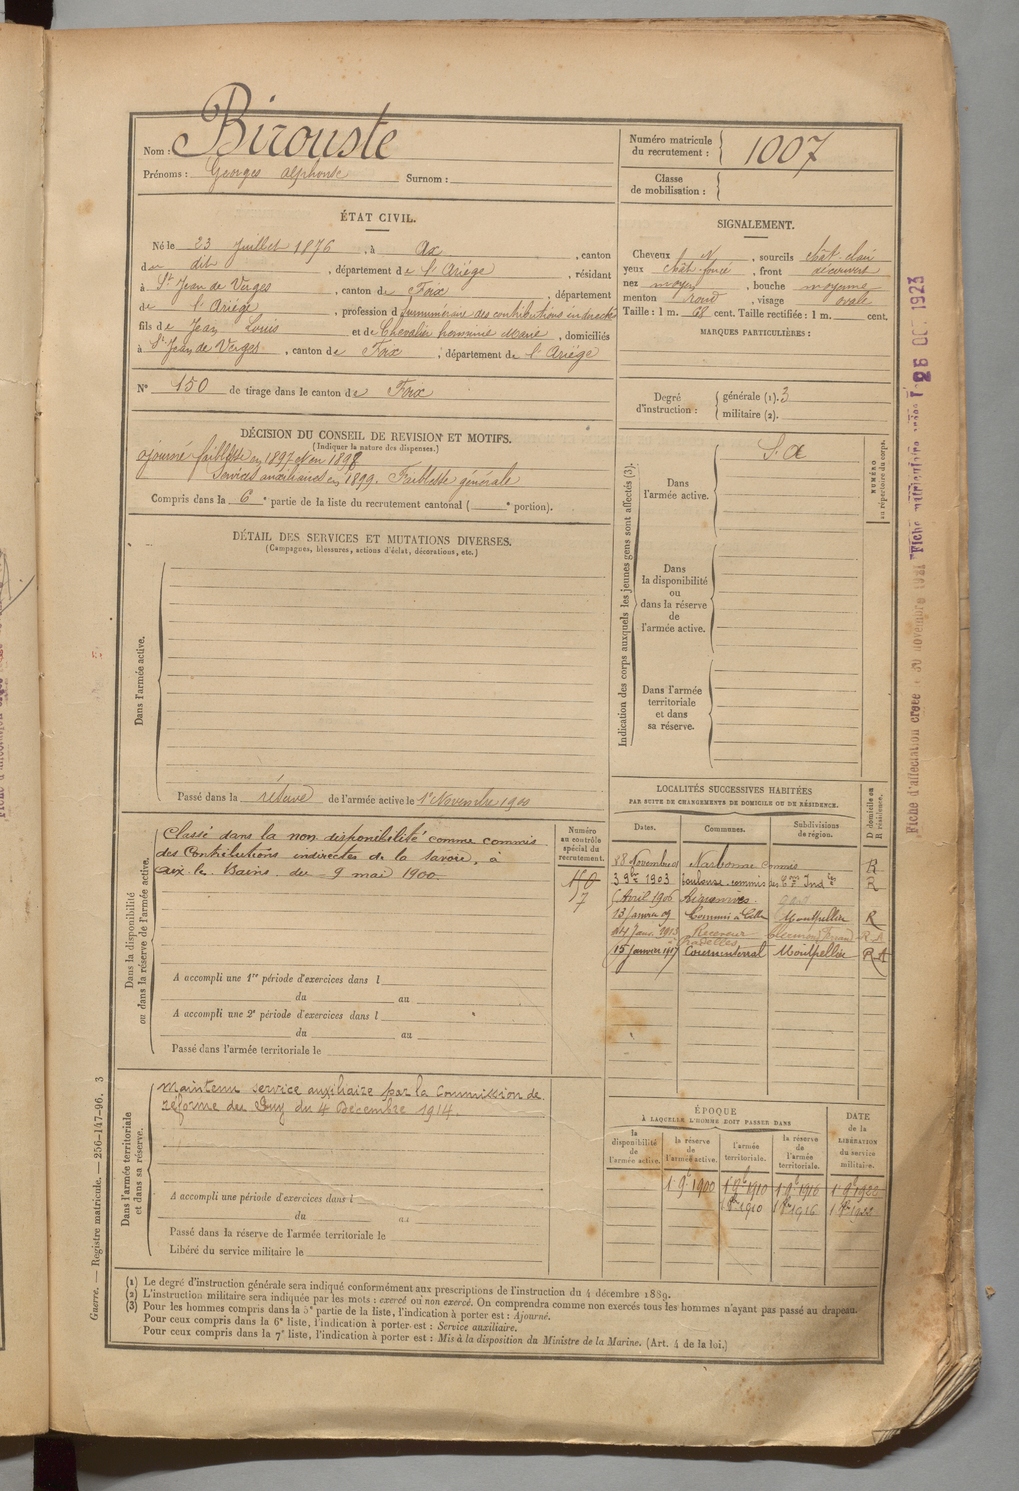 Nom : Birouste
Prénoms : Georges Alphonse Surnom :
Numéro matricule du recrutement : 1007
Classe de mobilisation :
ÉTAT CIVIL.
Né le 23 Juillet 1876, à Ax, canton
du dit, département de l'Ariège, résidant
à St Jean de Verges, canton de Foix, département
de l'Ariège, profession de surnuméraire des contributions indirectes
fils de Jean Louis et de Chevalier Marie, domiciliés
à St Jean de Verges, canton de Foix, département de l'Ariège
N° 150 de tirage dans le canton de Foix
SIGNALEMENT.
Cheveux N, sourcils chât. clair
yeux chât. foncé, front découvert
nez moyen, bouche moyenne
menton rond, visage ovale
Taille : 1 m. 68 cent. Taille rectifiée : 1 m. cent.
MARQUES PARTICULIÈRES :
Degré d'instruction : générale (1). 3
militaire (2).
DÉCISION DU CONSEIL DE REVISION ET MOTIFS.
(Indiquer la nature des dispenses.)
ajourné faiblesse en 1897 et en 1898
Services auxiliaires en 1899. Faiblesse générale
Compris dans la 6e partie de la liste du recrutement cantonal ( e portion).
DÉTAIL DES SERVICES ET MUTATIONS DIVERSES.
(Campagnes, blessures, actions d'éclat, décorations, etc.)
Dans l'armée active.
Passé dans la réserve de l'armée active le 1er Novembre 1900
Indication des corps auxquels les jeunes gens sont affectés (3).
NUMÉRO au répertoire du corps.
Dans l'armée active.
S. A
Dans la disponibilité ou dans la réserve de l'armée active.
Dans l'armée territoriale et dans sa réserve.
Dans la disponibilité ou dans la réserve de l'armée active.
Classé dans la non disponibilité comme commis
des Contributions indirectes de la Savoie, à
Aix-les-Bains, du 9 mai 1900.
Numéro au contrôle spécial du recrutement.
17
A accompli une 1re période d'exercices dans l
du au
A accompli une 2e période d'exercices dans l
du au
Passé dans l'armée territoriale le
LOCALITÉS SUCCESSIVES HABITÉES
PAR SUITE DE CHANGEMENTS DE DOMICILE OU DE RÉSIDENCE.
Dates. Communes. Subdivisions de région. D domicile ou R résidence.
Narbonne commis R
1903 Toulouse commis R
Avril 1906 Aiguesvives Gard
13 Janvier 09 Commis à Cette Montpellier R
Janv. 1913 Receveur Pradelles Clermont Ferrand R A
15 Janvier 1917 Cournonterral Montpellier R A
Dans l'armée territoriale et dans sa réserve.
Maintenu service auxiliaire par la Commission de
réforme du Puy du 4 Décembre 1914.
A accompli une période d'exercices dans l
du au
Passé dans la réserve de l'armée territoriale le
Libéré du service militaire le
ÉPOQUE
A LAQUELLE L'HOMME DOIT PASSER DANS
la disponibilité de l'armée active.
la réserve de l'armée active.
l'armée territoriale.
la réserve de l'armée territoriale.
DATE de la LIBÉRATION du service militaire.
1 9bre 1900 1 9bre 1910 1 9bre 1916 1 9bre 1922
(1) Le degré d'instruction générale sera indiqué conformément aux prescriptions de l'instruction du 4 décembre 1889.
(2) L'instruction militaire sera indiquée par les mots : exercé ou non exercé. On comprendra comme non exercés tous les hommes n'ayant pas passé au drapeau.
(3) Pour les hommes compris dans la 5e partie de la liste, l'indication à porter est : Ajourné.
Pour ceux compris dans la 6e liste, l'indication à porter est : Service auxiliaire.
Pour ceux compris dans la 7e liste, l'indication à porter est : Mis à la disposition du Ministre de la Marine. (Art. 4 de la loi.)
Guerre. — Registre matricule. — 256-147-96. 3
Fiche d'affectation créée novembre 1921 Fiche matriculaire créée 26 OCT 1923